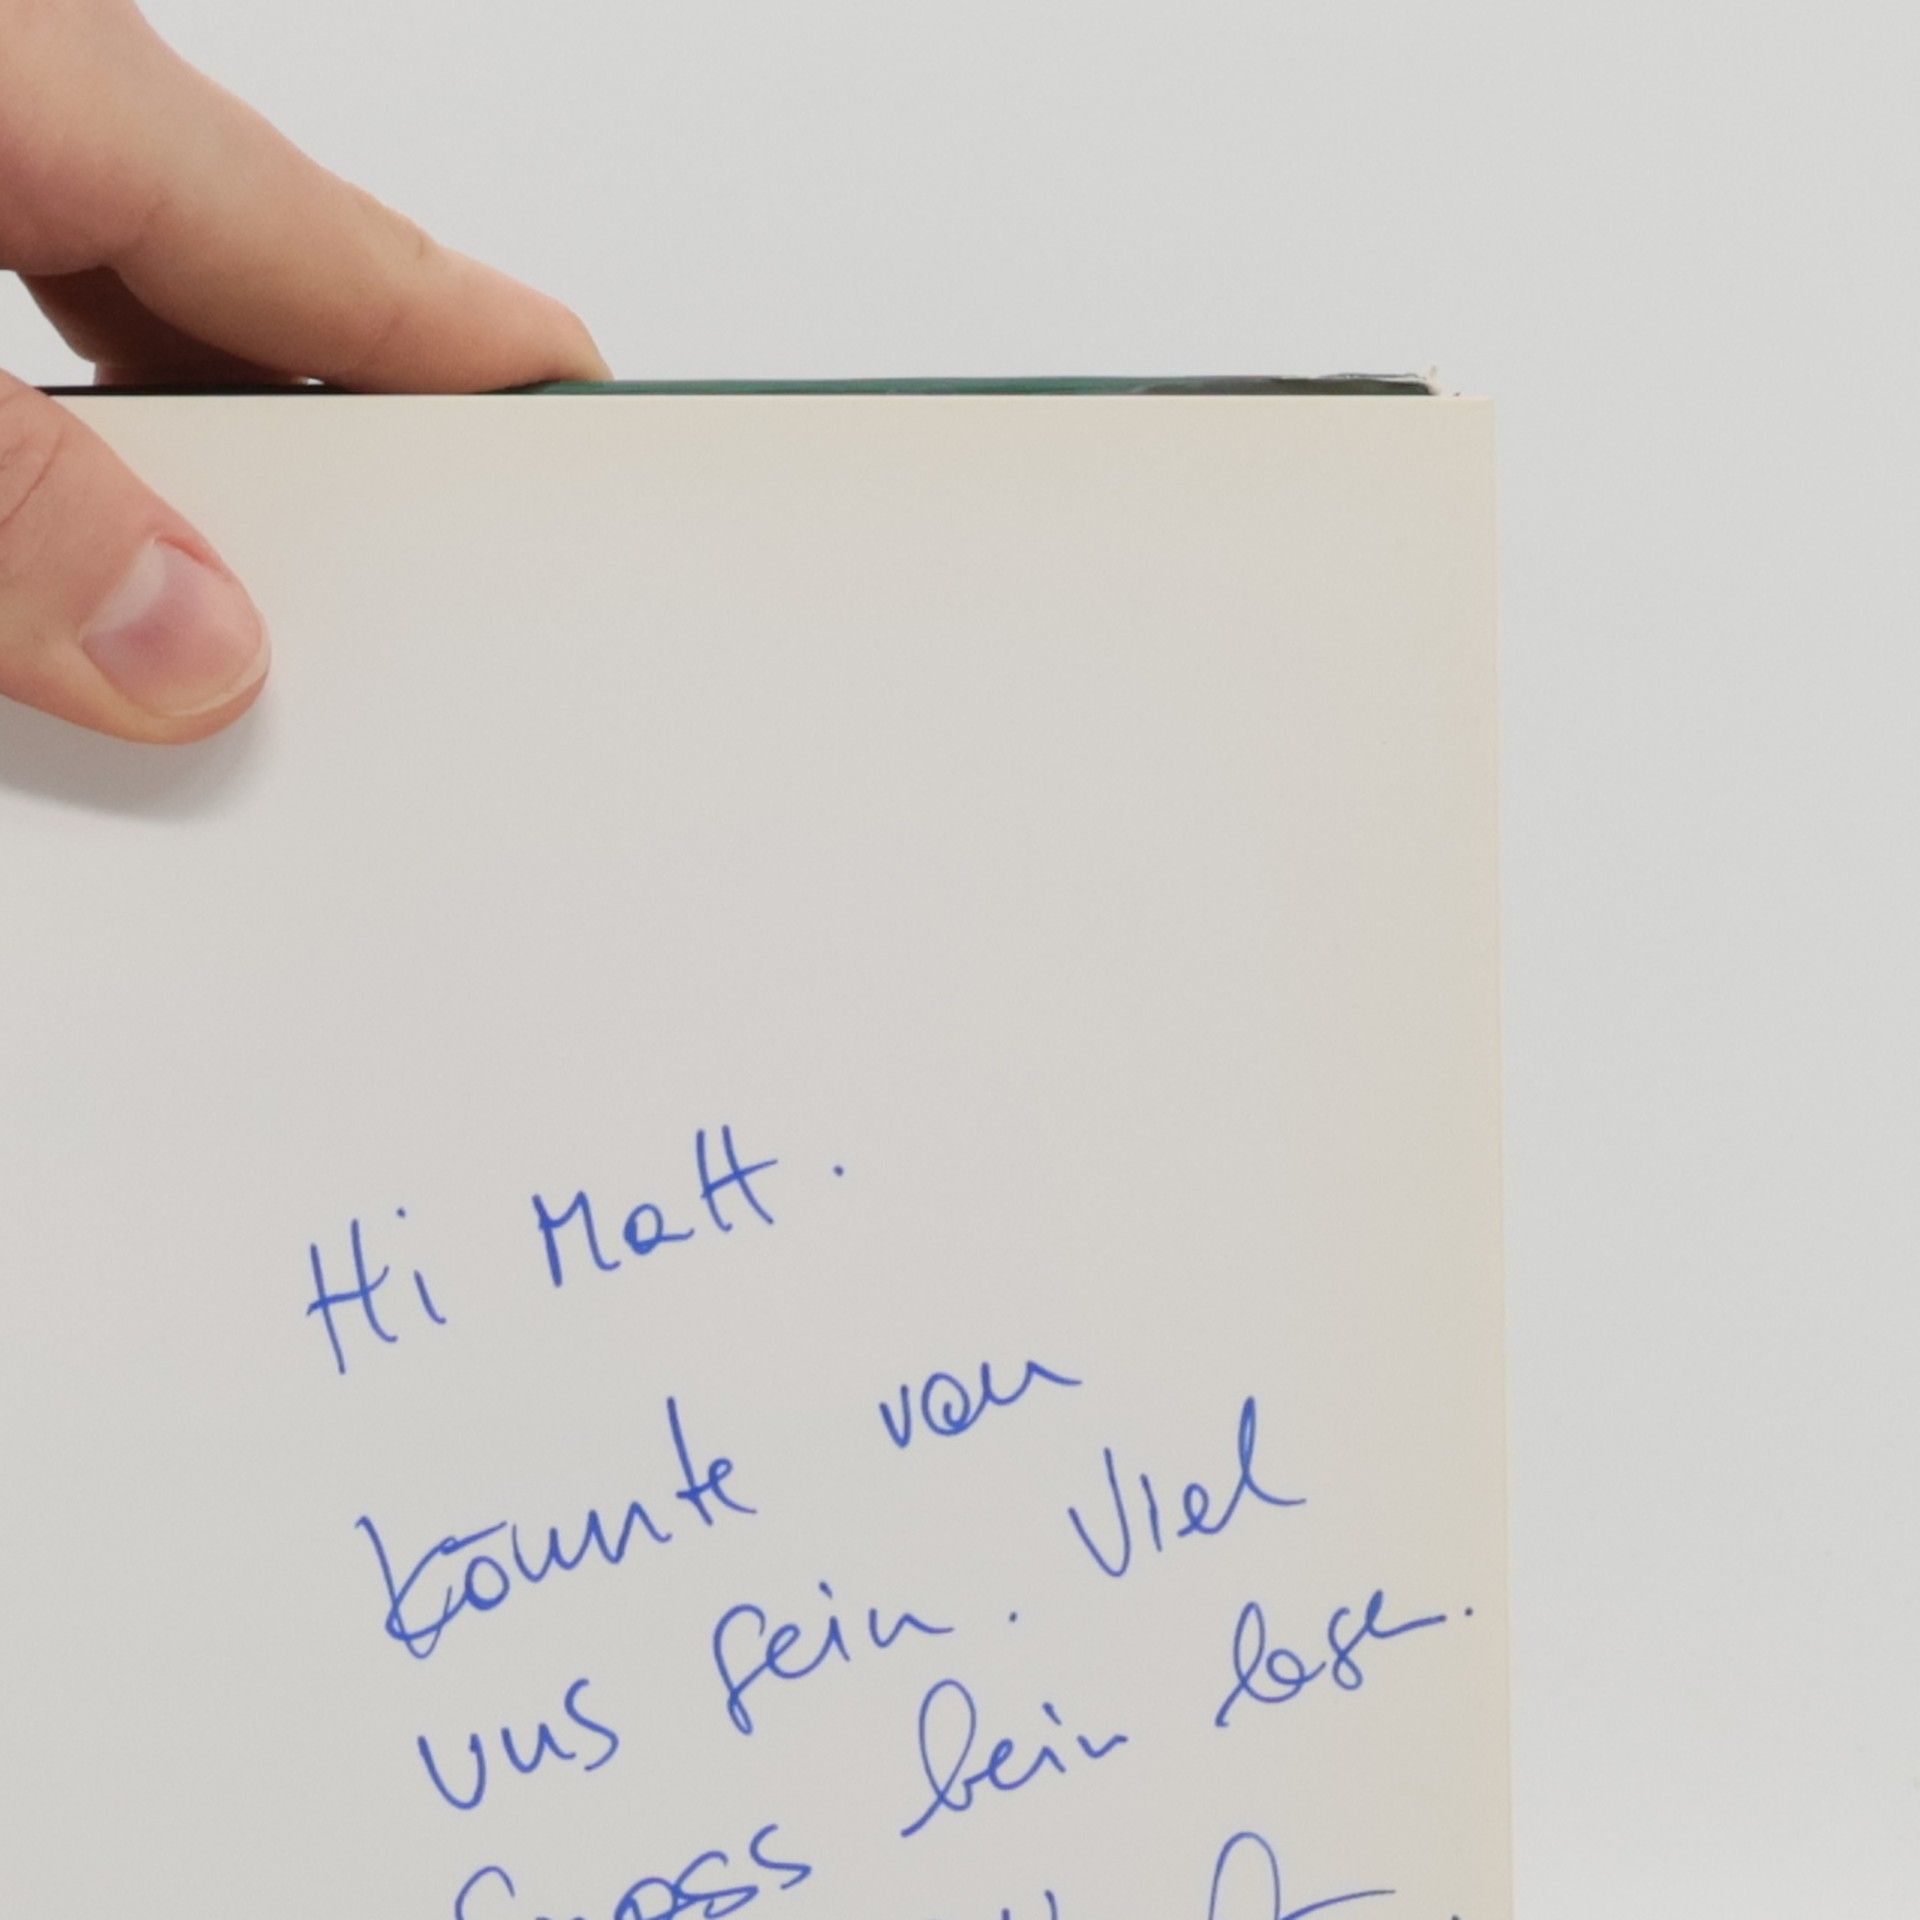 Hi Matt.
könnte von
uns sein. Viel
Spass beim lesen.